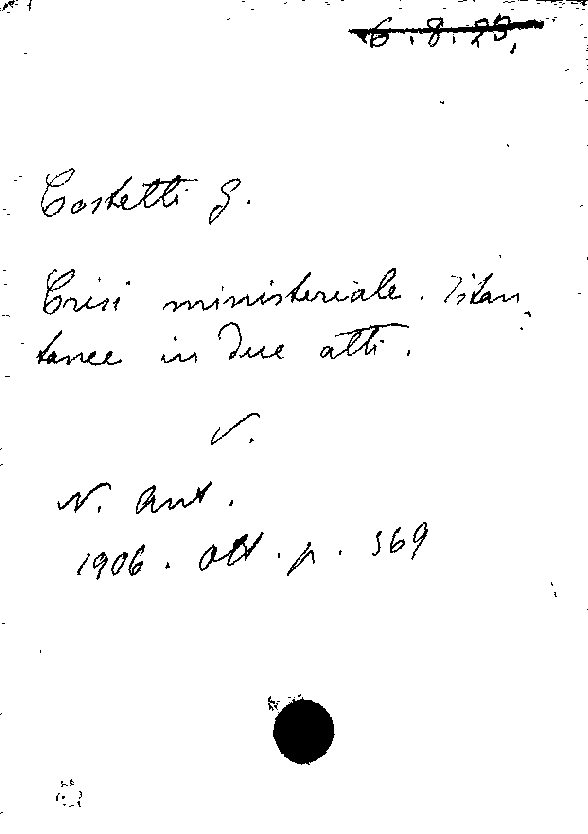 6.8.29.
Costetti G.
Crisi ministeriale. Istan
tanee in due atti.
V.
N. Ant.
1906. Ott. p. 369